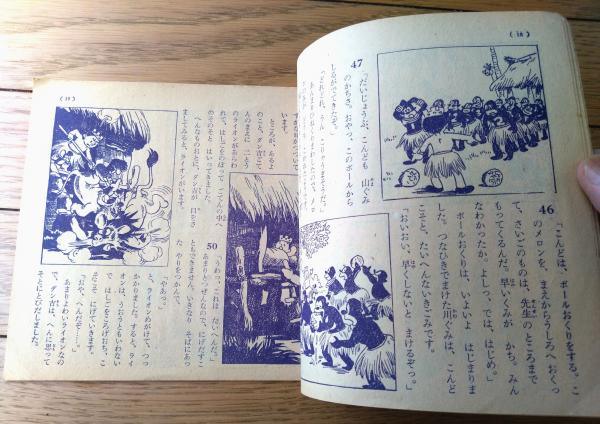 (18)
46
「こんどは、ボールおくりをする。こ
のメロンを、まえからうしろへ おくっ
て、さいごのものは、先生のところまで
もってくるんだ。早いくみが かち。みん
なわかったか。よしっ、では、はじめ。」
ボールおくりは、いよいよ はじまりま
した。つなひきでまけた川ぐみは、こんど
こそと、たいへんないきごみです。
「おいおい、早くしないと まけるぞっ。」
47
「だいじょうぶ、こんども 山ぐみ
のかちさ。おやっ、このボールから
しるがでてきたぞ。」
(19)
います。
ところが、あるよ
のこと、ダン吉にて
んのまえに 一とう
のライオンがあらわ
れて、はしごをのぼって、ごてんの中へ
のそのそと はいってきました。
へんなもの音に、ダン吉が 目をさ
ましてみると、ライオンがいます。
50
「うわっ、これは たいへんだ。」
あまりとつぜんなので、にげだすこ
ともできません。いきなり そばにあっ
た やりをつかんで、
「やあっ。」
と、ライオンめがけて、つっ
かかりました。すると、ライ
オンは、うおうともいわない
で はしごをころげおち、こ
そこそ にげていきます。
「おや、へんだぞ……。」
あまりよわいライオンなの
で、ダン吉は、へんに思って
そとにとびだしました。